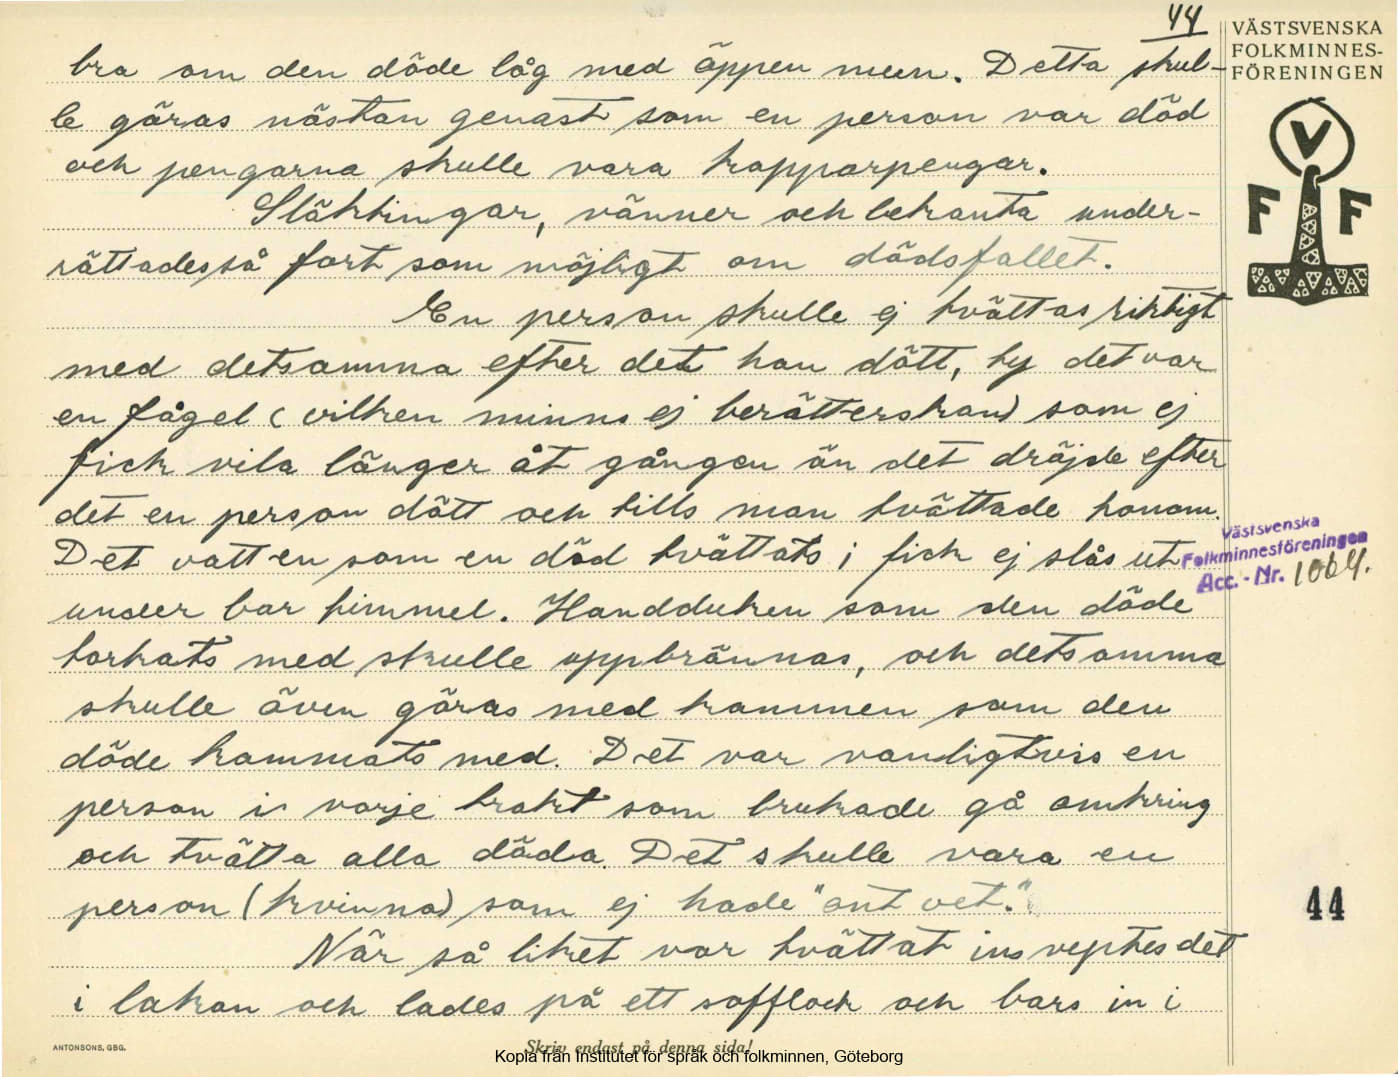 44
VÄSTSVENSKA
FOLKMINNES-
FÖRENINGEN
V
F F
bra om den döde låg med öppen mun. Detta skul-
le göras nästan genast som en person var död
och pengarna skulle vara kopparpengar.
Släktingar, vänner och bekanta under-
rättades så fort som möjligt om dödsfallet.
En person skulle ej tvättas riktigt
med detsamma efter det han dött, ty det var
en fågel (vilken minns ej berätterskan) som ej
fick vila länger åt gången än det dröjde efter
det en person dött och tills man tvättade honom.
Det vatten som en död tvättats i fick ej slås ut
under bar himmel. Handduken som den döde
torkats med skulle uppbrännas, och detsamma
skulle även göras med kammen som den
döde kammats med. Det var vanligtvis en
person i varje trakt som brukade gå omkring
och tvätta alla döda. Det skulle vara en
person (kvinna) som ej hade "ont vet."
När så liket var tvättat insveptes det
i lakan och lades på ett sofflock och bars in i
Västsvenska
Folkminnesföreningen
Acc. - Nr. 1064.
44
ANTONSONS, GBG.
Skriv endast på denna sida!
Kopia från Institutet för språk och folkminnen, Göteborg